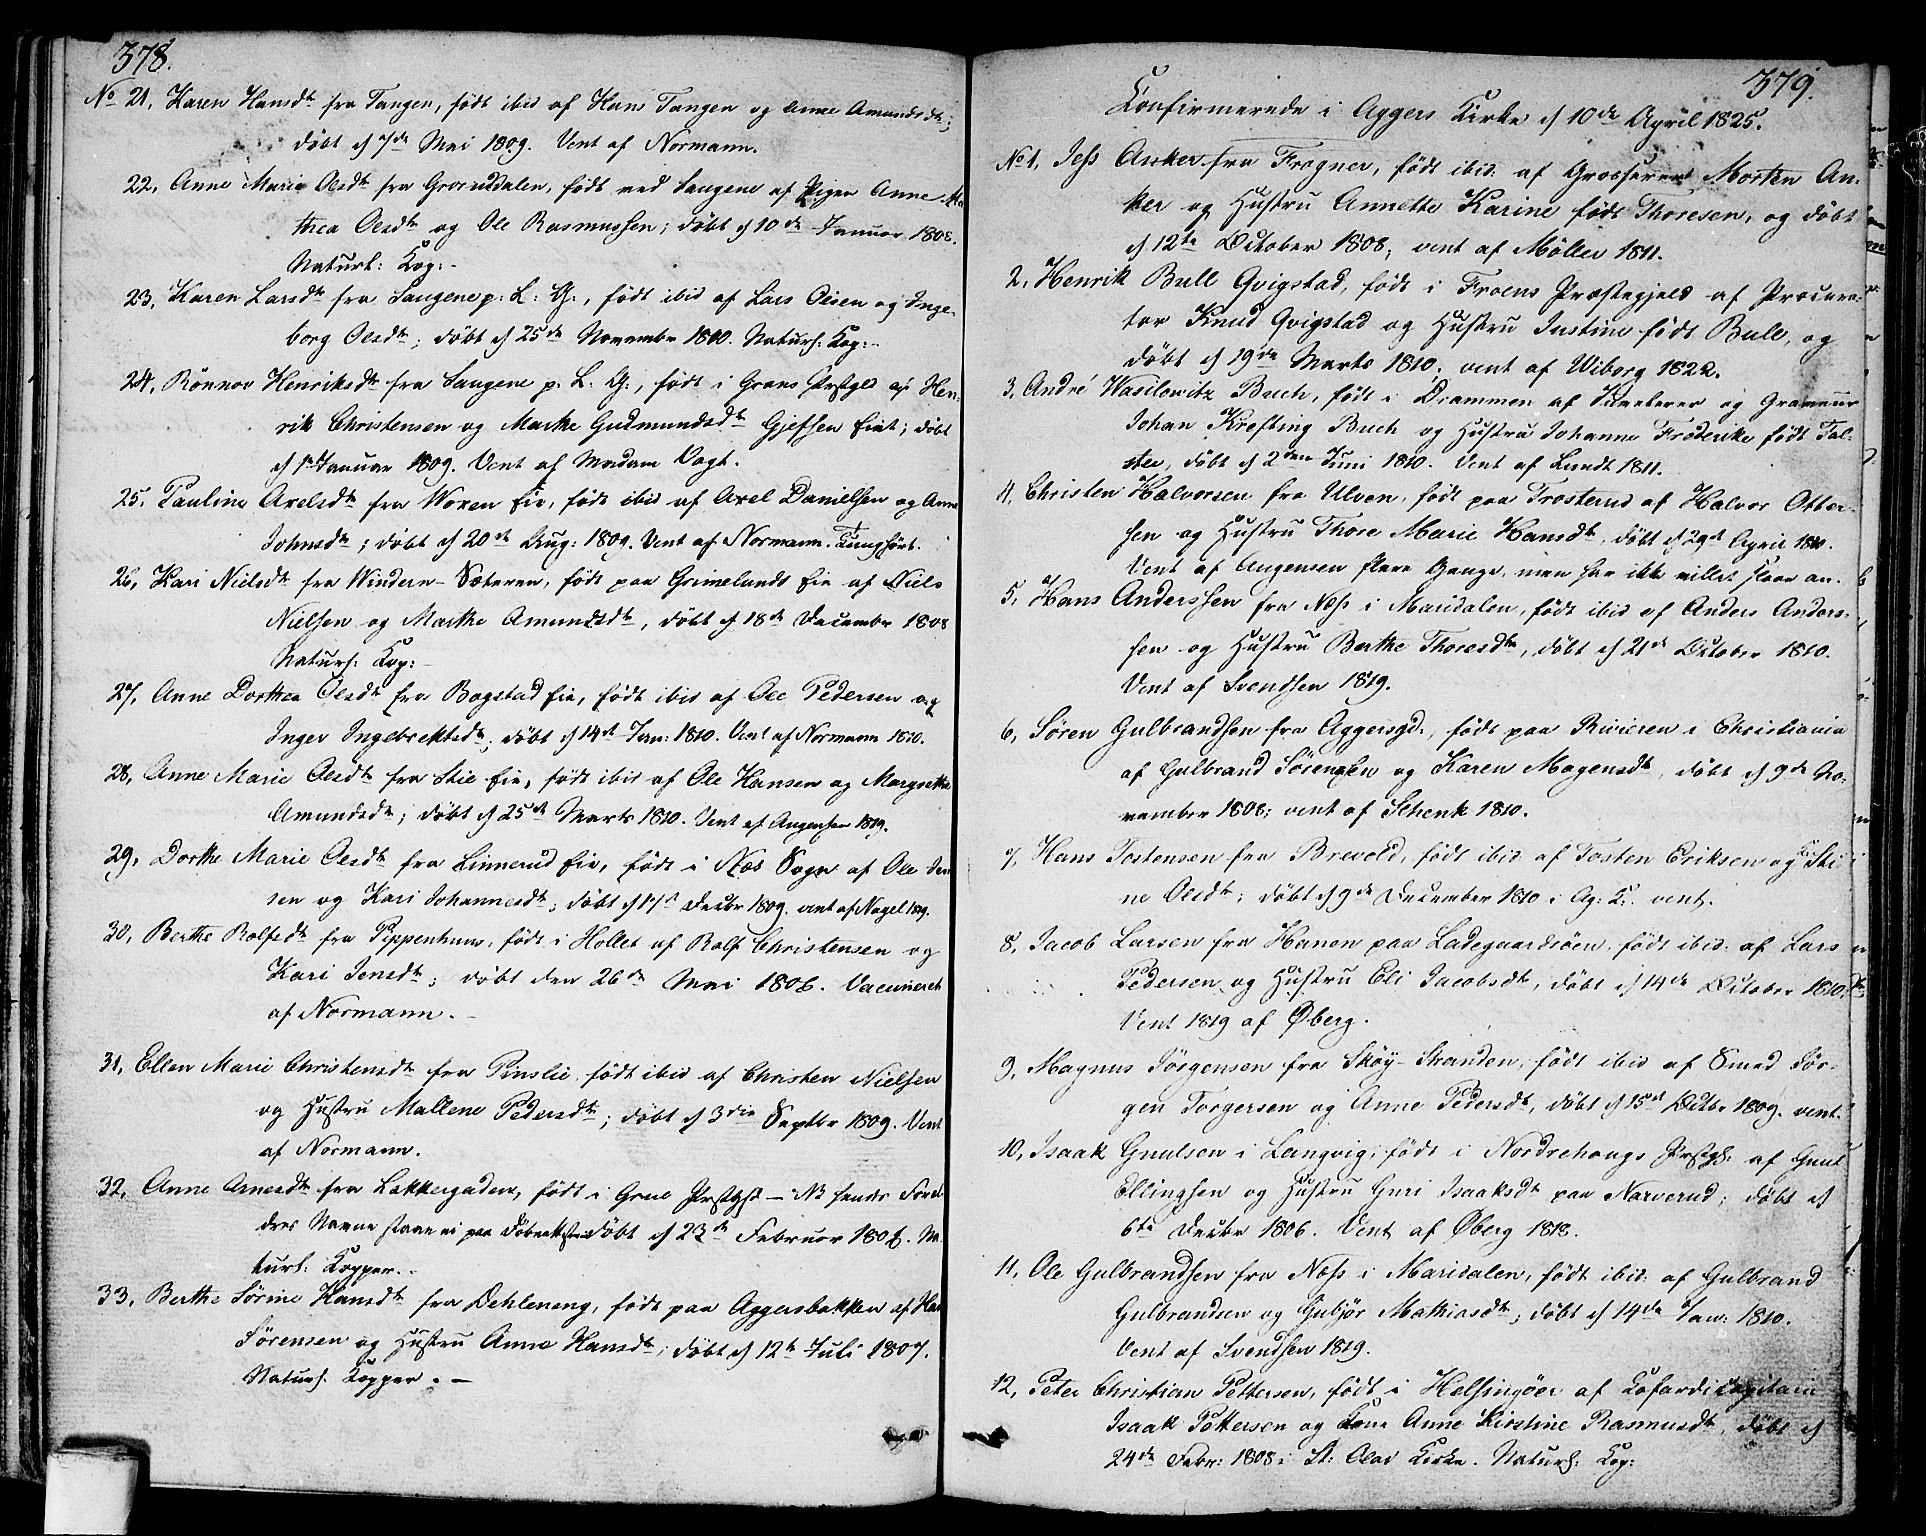 378.
No 21, Karen Hansdtr fra Tangen, født ibid af Hans Tangen og Anne Amundsdtr;
døbt d 7de Mai 1809. Vent af Normann.
22, Anne Marie Olsdtr fra Grorudalen, født ved Saugene af Pigen Anne Ma
thea Olsdtr og Ole Rasmussen; døbt d 10de Januar 1808.
Naturl: Kop:-
23, Karen Larsdtr fra Saugene p: L: G:, født ibid af Lars Olsen og Inge-
borg Olsdtr; døbt d 25de November 1810. Naturl: Kop:-
24, Rønnov Henriksdtr fra Saugene p: L: G:, født i Grans Prstgld af Hen-
rik Christensen og Marthe Gudmundsdtr Gjefsen Eiet; døbt
d 1ste Januar 1809. Vent af Madam Vogt.
25, Pauline Axelsdtr fra Woxen Eie, født ibid af Axel Danielsen og Anne
Johnsdtr; døbt d 20de Aug: 1809. Vent af Normann. Tunghørt.
26, Kari Nielsdtr fra Windern-Sæteren, født paa Grimelunds Eie af Niels
Nielsen og Marthe Amundsdtr, døbt d 18de December 1808
Naturl: Kop:-
27, Anne Dorthea Olsdtr fra Bogstad Eie, født ibid af Ole Pedersen og
Inger Ingebrektsdtr; døbt d 14de Jan: 1810. Vent af Normann 1810.
28, Anne Marie Olsdtr fra Stie Eie, født ibid af Ole Hansen og Margrethe
Amundsdtr; døbt d 25de Marts 1810. Vent af Augensen 1819.
29, Dorthe Marie Olsdtr fra Linnerud Eie, født i Næs Sogn af Ole Jen
sen og Kari Johannesdtr; døbt d 17de Decbr 1809. vent af Nagel 1819.
30, Berthe Rolfsdtr fra Pippenhuus, født i Hollet af Rolf Christensen og
Kari Jensdtr; døbt den 26de Mai 1806. Vaccineret
af Normann.-
31, Ellen Marie Christensdtr fra Pinslie, født ibid af Christen Nielsen
og Hustru Mallene Pedersdtr; døbt d 3die Septbr 1809. Vent
af Normann.
32, Anne Arnesdtr fra Løkkergaden, født i Grue Prstgjd - NB hendes Forel
dres Navne staae ei paa Døbeattesten døbt d 23de Februar 1806. Na
turl: Kopper.-
33, Berthe Sørine Hansdtr fra Dehleneng, født paa Aggersbakken af Hans
Sørensen og Hustru Anne Hansdtr; døbt d 12te Juli 1807.
Naturl. Kopper.-
379.
Confirmerede i Aggers Kirke d 10de April 1825.
No 1, Jess Anker fra Frogner, født ibid. af Grosserer Morten An-
ker og Hustru Annette Karine født Thoresen, og døbt
d 12te October 1808; vent af Møller 1811.
2, Henrik Bull Qvigstad, født i Froens Præstegjeld af Procura-
tor Knud Qvigstad og Hustru Justine født Bull, og
døbt d 19de Marts 1810. vent af Wiborg 1822.
3, André Wasilowitz Buch, født i Drammen af Juveleerer og Graveur
Johan Krefting Buch og Hustru Johanne Frederike født Fal-
ster, døbt d 2den Juni 1810. Vent af Lundt 1811.
4, Christen Halvorsen fra Ulven, født paa Trosterud af Halvor Otter-
sen og Hustru Thore Marie Hansdtr, døbt d 29de April 1810.
Vent af Augensen flere Gange, men har ikke villet slaae an.
5, Hans Anderssen fra Næss i Maridalen, født ibid af Anders Anders-
sen og Hustru Berthe Thoresdtr, døbt d 21de October 1810.
Vent af Svendsen 1819.
6, Søren Gulbrandsen fra Aggersgd., født paa Rivieren i Christiania
af Gulbrand Sørensen og Karen Mogensdtr, døbt d 9de No-
vember 1808; vent af Schenk 1810.
7, Hans Tostensen fra Brevold, født ibid af Tosten Eriksen og Sti
ne Olsdtr; døbt d 9de December 1810 i Ag: K:. vent.
8, Jacob Larsen fra Hanen paa Ladegaardsøen, født ibid: af Lars
Pedersen og Hustru Eli Jacobsdtr, døbt d 14de October 1810.
Vent 1819 af Øberg.
9, Magnus Jørgensen fra Skøy-Stranden, født ibid af Smed Jør-
gen Torgersen og Anne Pedersdtr, døbt d 15de Octbr 1809. vent.
10, Isaak Gnulsen i Langvig, født i Nordrehougs Prstgd: af Gnul
Ellingsen og Hustru Guri Isaaksdtr paa Narverud; døbt d
6te Decbr 1806. Vent af Øberg 1818.
11, Ole Gulbrandsen fra Næss i Maridalen, født ibid: af Gulbrand
Gulbrandsen og Gubjør Mathiasdtr; døbt d 14de Jan: 1810.
Vent af Svendsen 1819.
12, Peter Christian Pettersen, født i Helsingøer af Cofardicapitain
Isaak Pettersen og Kone Anne Kirstine Rasmusdtr, døbt d
24de Febr: 1808 i St: Olai Kirke. Naturl: Kop: